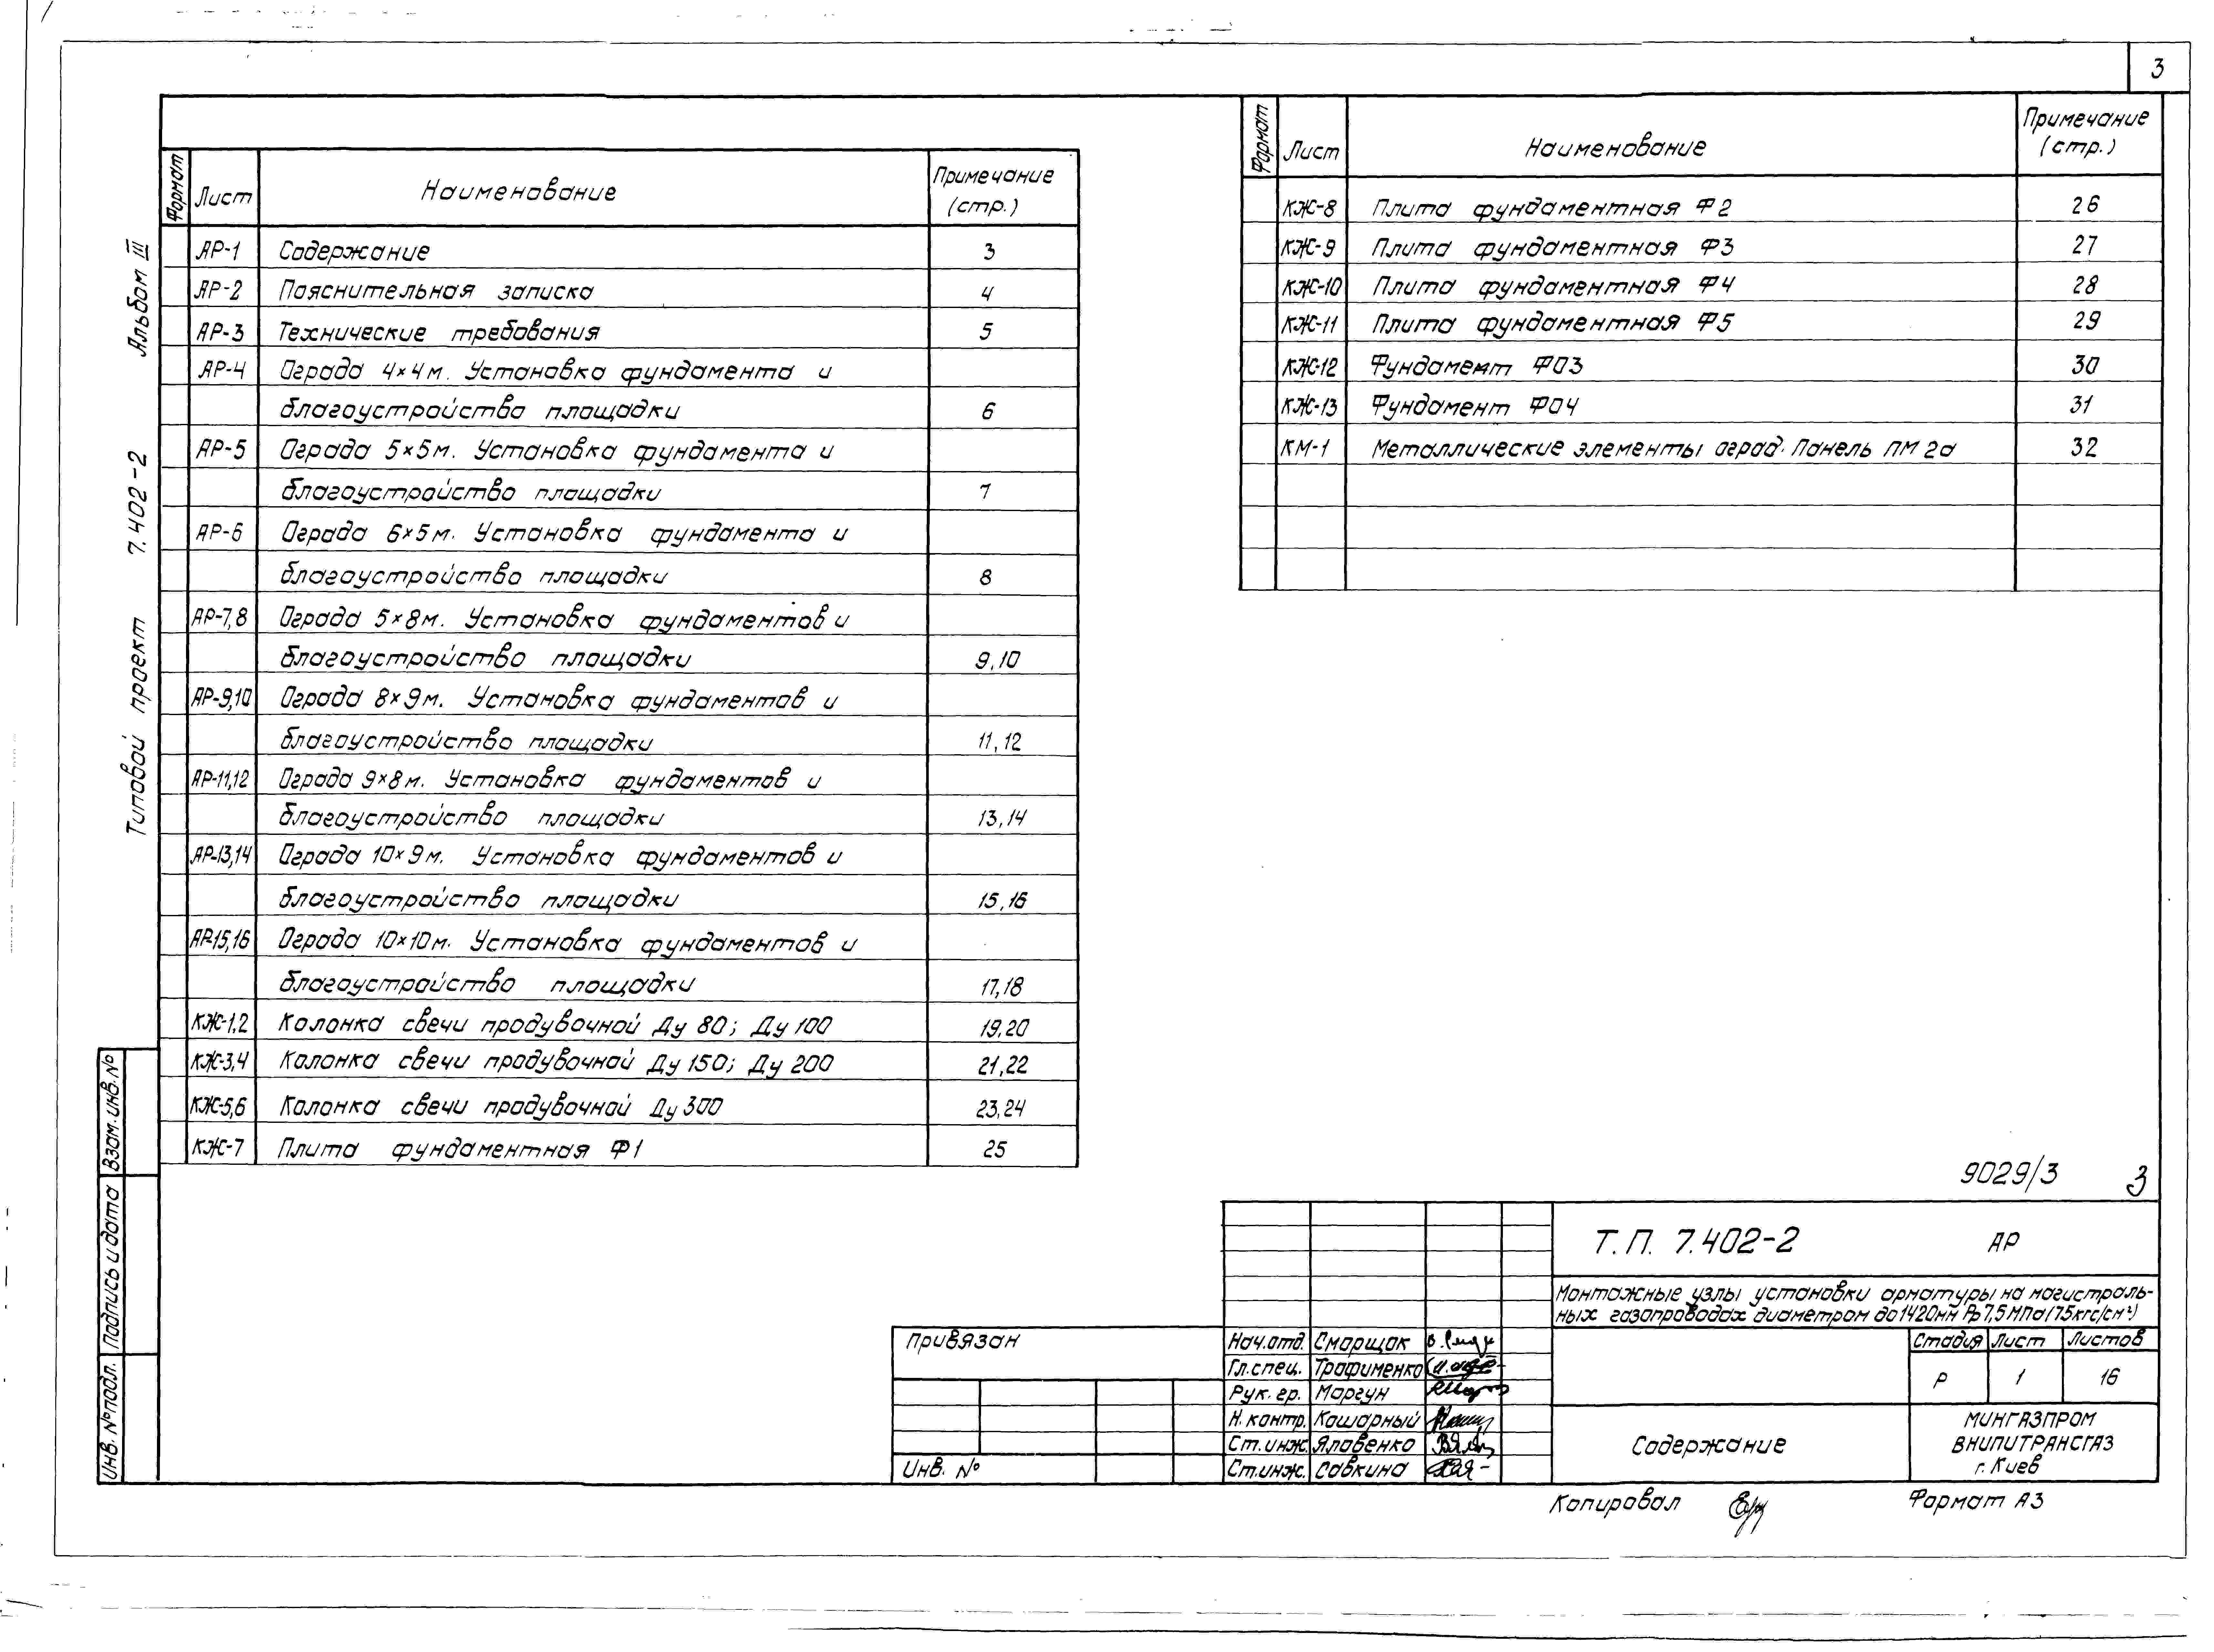 3
Типовой проект 7.402-2 Альбом III
Формат Лист Наименование Примечание (стр.)
АР-1 Содержание 3
АР-2 Пояснительная записка 4
АР-3 Технические требования 5
АР-4 Ограда 4×4м. Установка фундамента и
благоустройство площадки 6
АР-5 Ограда 5×5м. Установка фундамента и
благоустройство площадки 7
АР-6 Ограда 6×5м. Установка фундамента и
благоустройство площадки 8
АР-7,8 Ограда 5×8м. Установка фундаментов и
благоустройство площадки 9,10
АР-9,10 Ограда 8×9м. Установка фундаментов и
благоустройство площадки 11,12
АР-11,12 Ограда 9×8м. Установка фундаментов и
благоустройство площадки 13,14
АР-13,14 Ограда 10×9м. Установка фундаментов и
благоустройство площадки 15,16
АР-15,16 Ограда 10×10м. Установка фундаментов и
благоустройство площадки 17,18
КЖ-1,2 Колонка свечи продувочной Ду 80; Ду 100 19,20
КЖ-3,4 Колонка свечи продувочной Ду 150; Ду 200 21,22
КЖ-5,6 Колонка свечи продувочной Ду 300 23,24
КЖ-7 Плита фундаментная Ф1 25
Формат Лист Наименование Примечание (стр.)
КЖ-8 Плита фундаментная Ф2 26
КЖ-9 Плита фундаментная Ф3 27
КЖ-10 Плита фундаментная Ф4 28
КЖ-11 Плита фундаментная Ф5 29
КЖ-12 Фундамент Ф03 30
КЖ-13 Фундамент Ф04 31
КМ-1 Металлические элементы оград. Панель ПМ 2а 32
Инв. № подл. Подпись и дата Взам. инв. №
9029/3 3
Т.П. 7.402-2 АР
Монтажные узлы установки арматуры на магистраль-
ных газопроводах диаметром до 1420мм Рр 7,5 МПа (75кгс/см²)
Привязан
Инв. №
Нач.отд. Сморщок
Гл.спец. Трофименко
Рук. гр. Моргун
Н. контр. Кошарный
Ст.инж. Яловенко
Ст.инж. Совкина
Стадия Лист Листов
Р 1 16
Содержание
МИНГАЗПРОМ
ВНИПИТРАНСГАЗ
г. Киев
Копировал Формат А3